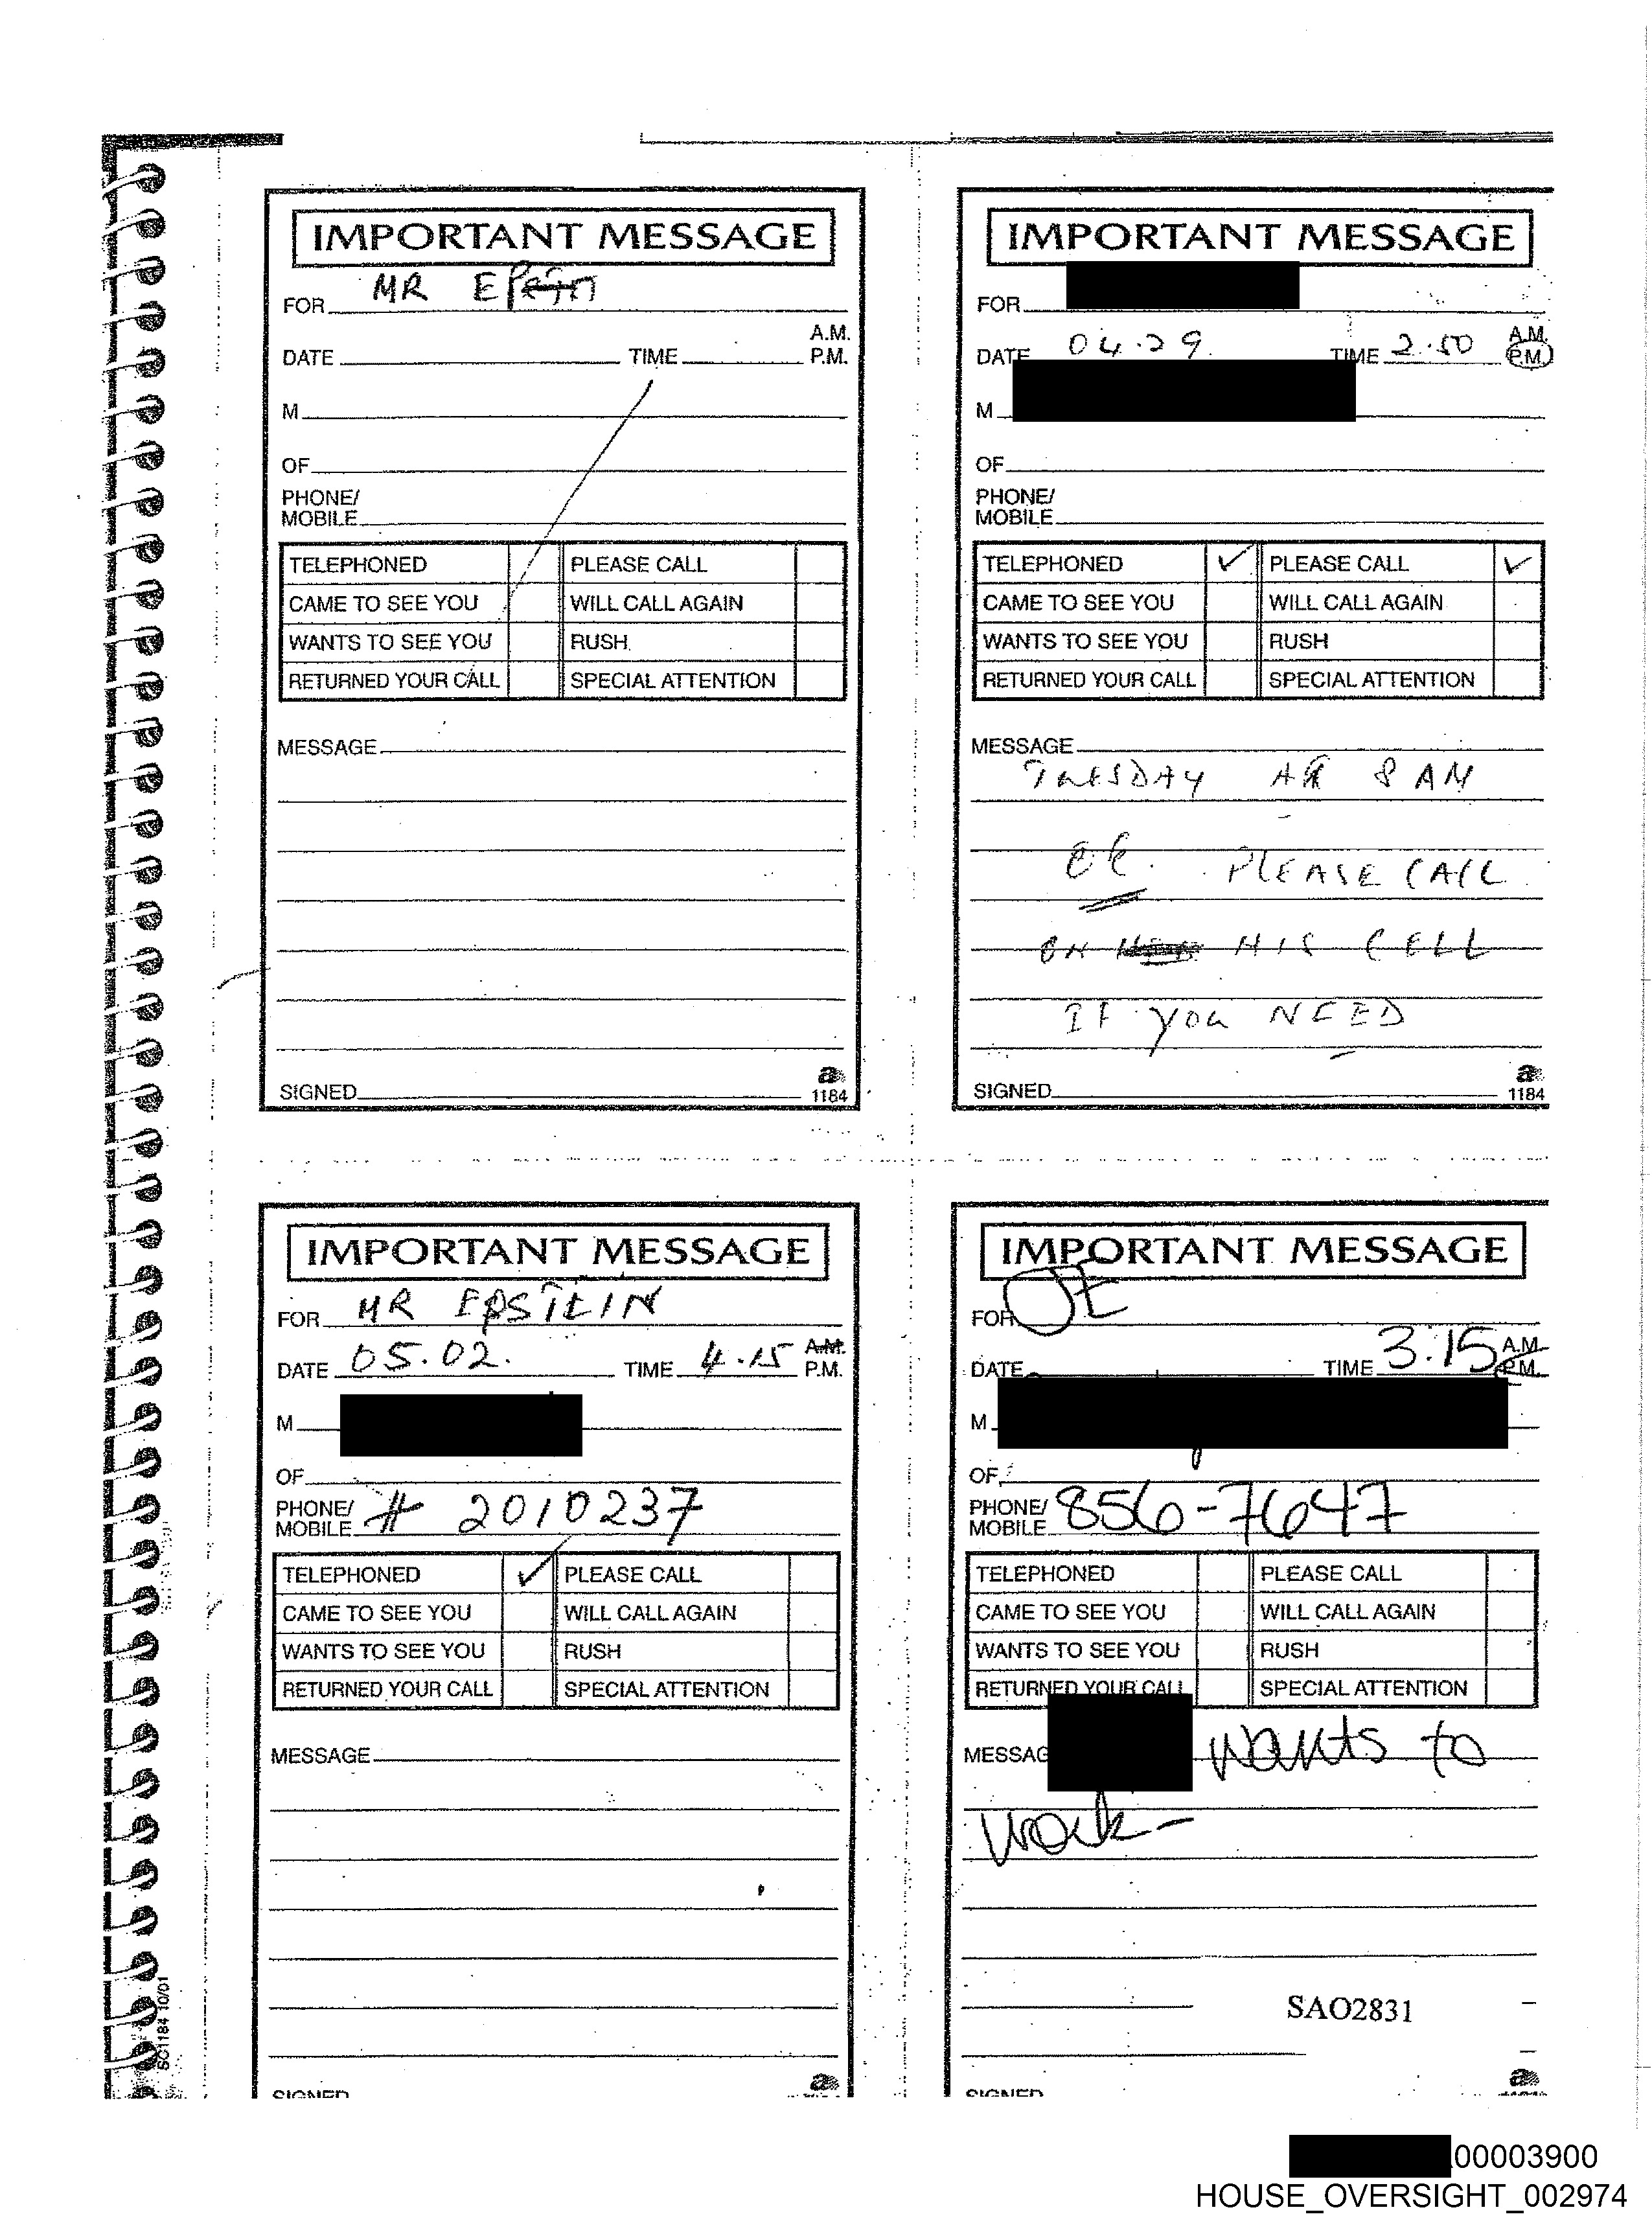 IMPORTANT MESSAGE
FOR MR
DATE TIME A.M. P.M.
M
OF
PHONE/
MOBILE
TELEPHONED PLEASE CALL
CAME TO SEE YOU WILL CALL AGAIN
WANTS TO SEE YOU RUSH
RETURNED YOUR CALL SPECIAL ATTENTION
MESSAGE
SIGNED
a
1184
IMPORTANT MESSAGE
FOR
DATE 04.29. TIME 2.50 A.M. P.M.
M
OF
PHONE/
MOBILE
TELEPHONED ✓ PLEASE CALL ✓
CAME TO SEE YOU WILL CALL AGAIN
WANTS TO SEE YOU RUSH
RETURNED YOUR CALL SPECIAL ATTENTION
MESSAGE
TUESDAY AT 8 AM
PLEASE CALL
ON HIS CELL
IF YOU NEED
SIGNED
a
1184
IMPORTANT MESSAGE
FOR MR EPSTEIN
DATE 05.02. TIME 4.15 A.M. P.M.
M
OF
PHONE/
MOBILE # 2010237
TELEPHONED ✓ PLEASE CALL
CAME TO SEE YOU WILL CALL AGAIN
WANTS TO SEE YOU RUSH
RETURNED YOUR CALL SPECIAL ATTENTION
MESSAGE
SIGNED
a
IMPORTANT MESSAGE
FOR JE
DATE TIME 3:15 A.M. P.M.
M
OF
PHONE/
MOBILE 856-7647
TELEPHONED PLEASE CALL
CAME TO SEE YOU WILL CALL AGAIN
WANTS TO SEE YOU RUSH
RETURNED YOUR CALL SPECIAL ATTENTION
MESSAG wants to
work-
SAO2831
SIGNED
a
SC1184 10/01
00003900
HOUSE_OVERSIGHT_002974